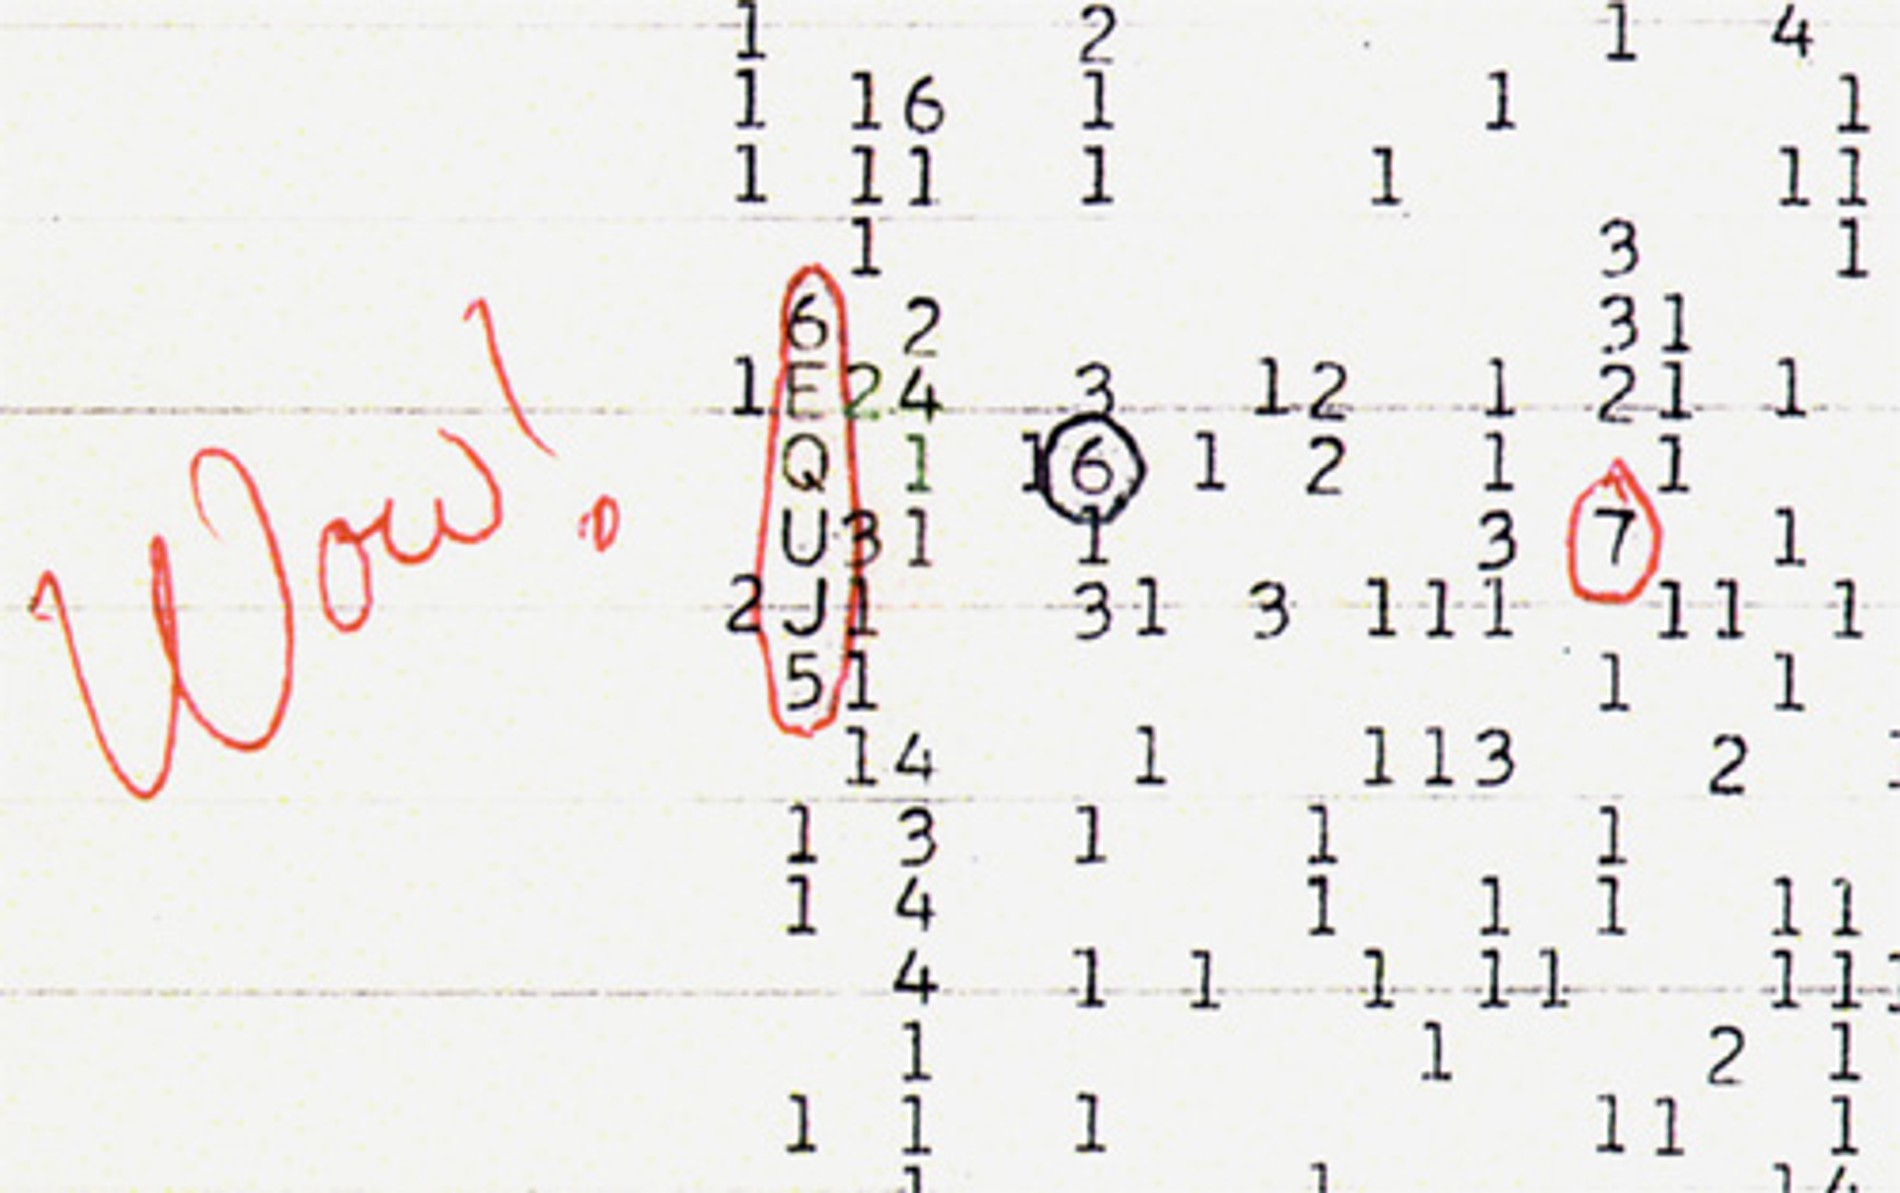 1 2 1 4
1 16 1 1 1
1 11 1 1 11
1 3 1
6 2 31
1E24 3 12 1 21 1
Q 1 16 1 2 1 1
Wow!
U31 1 3 7 1
2J1 31 3 111 11 1
51 1 1
14 1 113 2 1
1 3 1 1 1
1 4 1 1 1 11
4 1 1 1 11 111
1 1 2 1
1 1 1 11 1